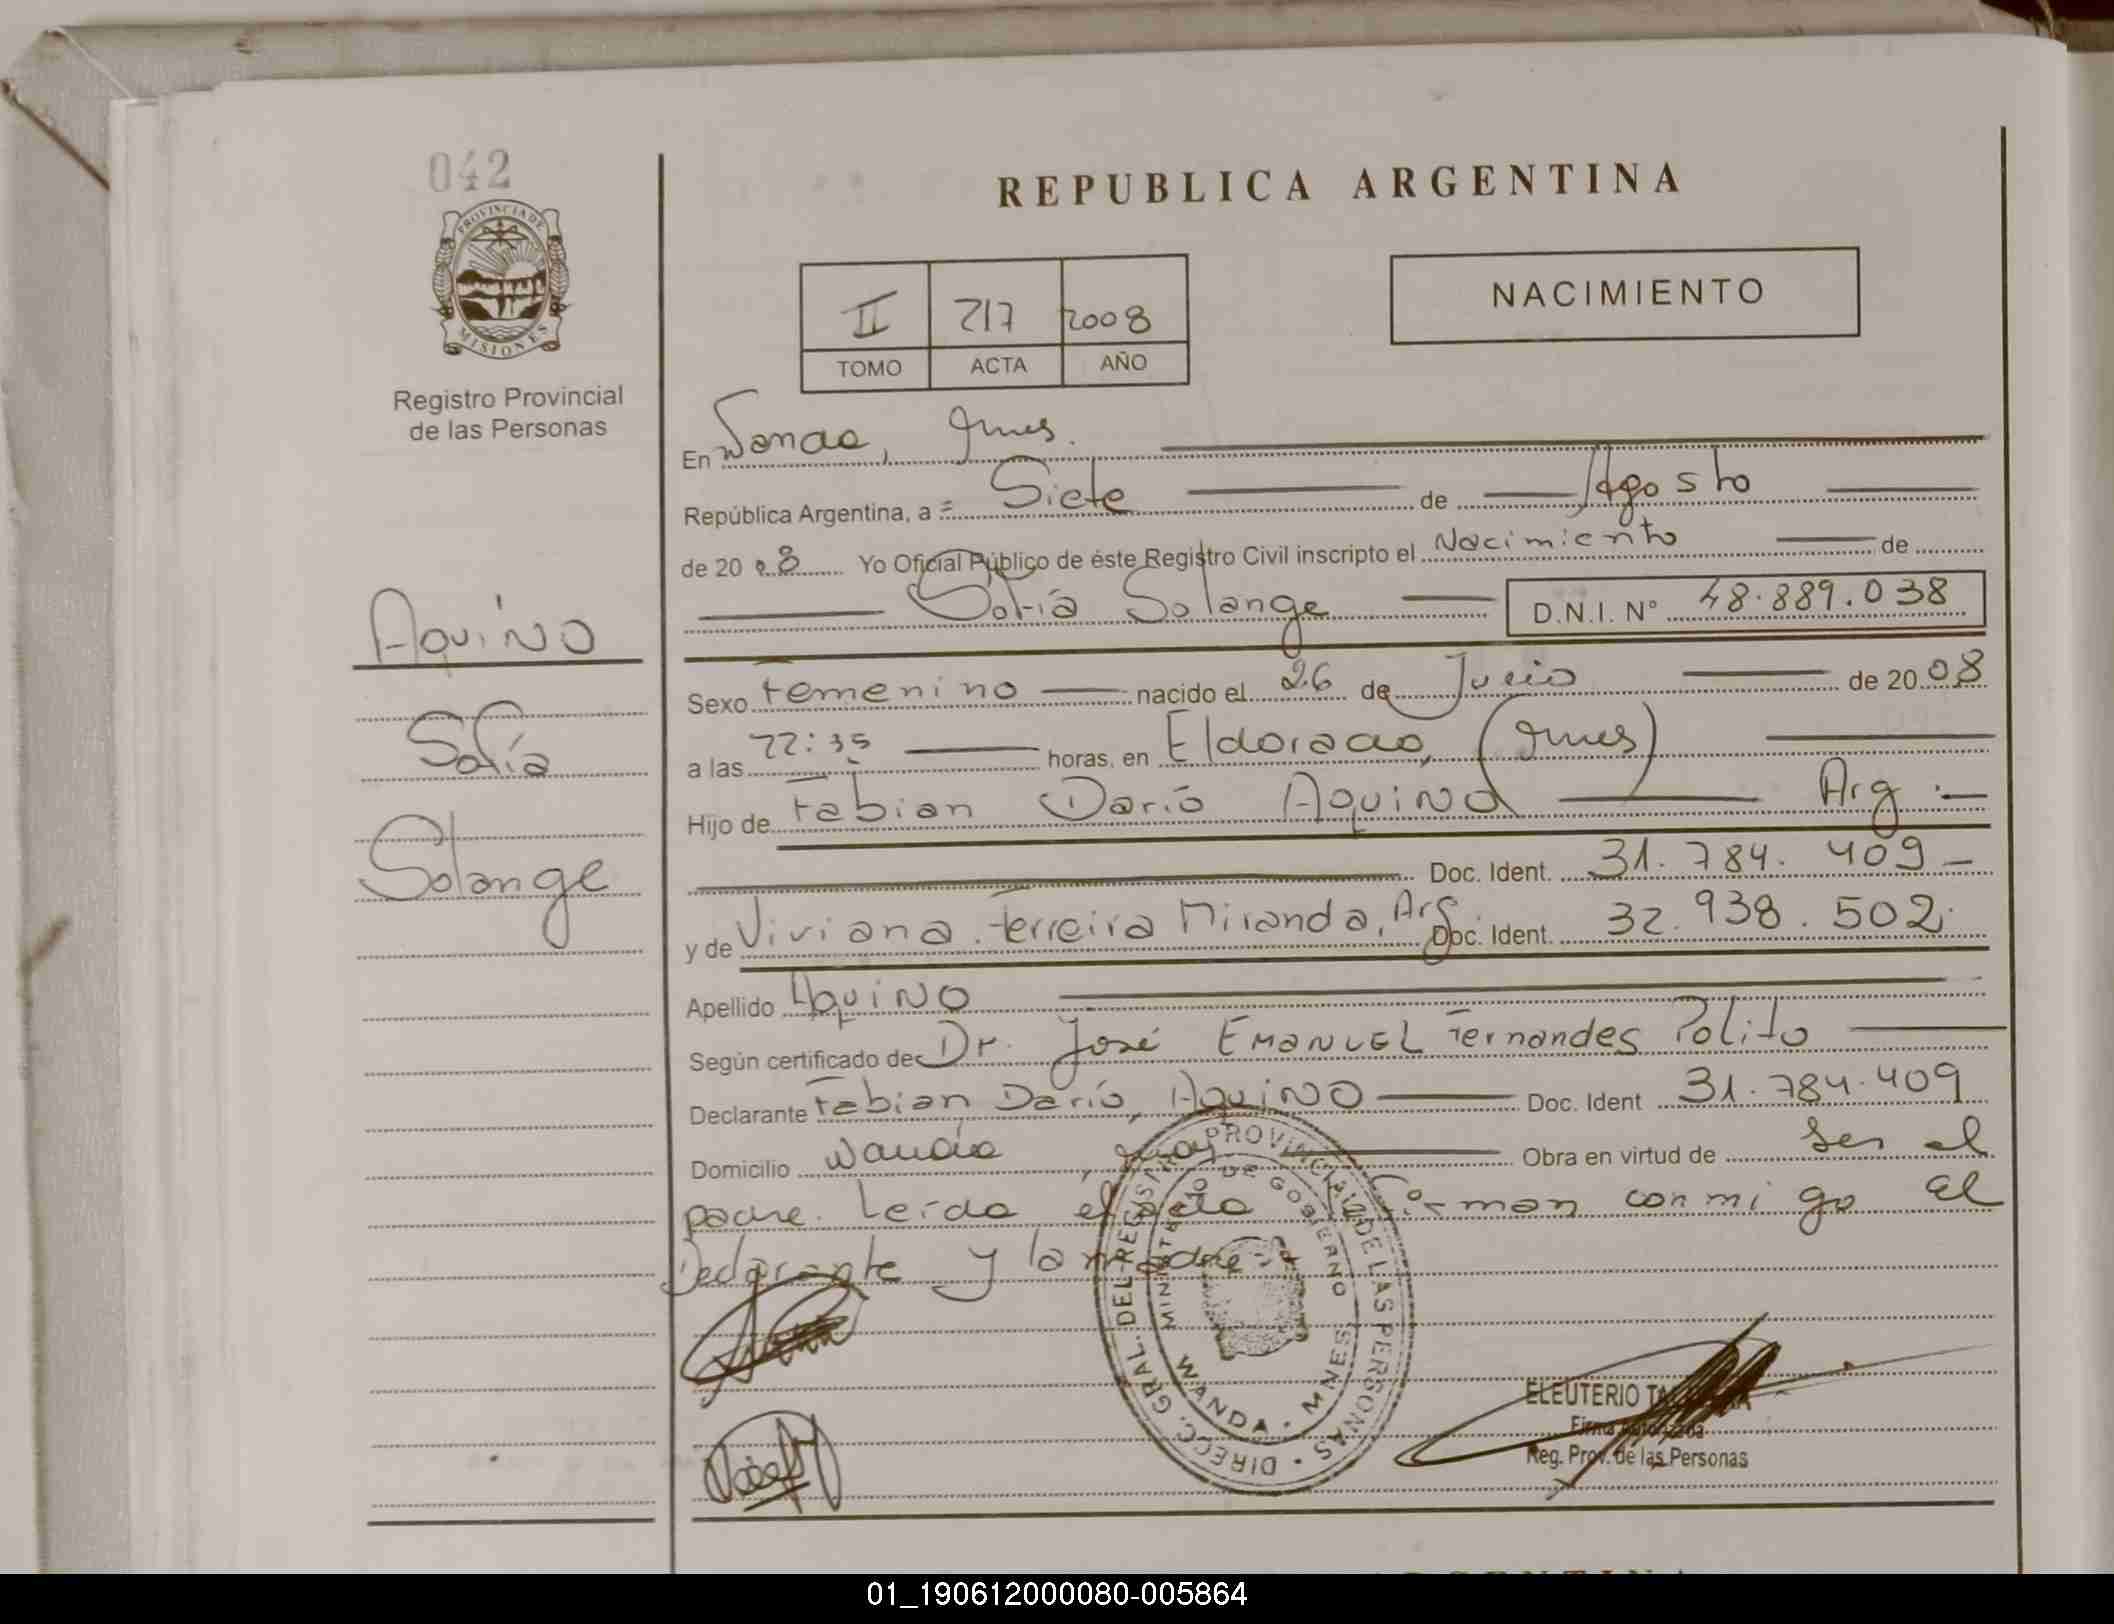 042
PROVINCIA DE
MISIONES
Registro Provincial
de las Personas
Aquino
Sofía
Solange
REPUBLICA ARGENTINA
II 217 2008
TOMO ACTA AÑO
NACIMIENTO
En Wanda, Mnes.
República Argentina, a Siete de Agosto
de 2008 Yo Oficial Público de éste Registro Civil inscripto el Nacimiento de
Sofía Solange D.N.I. N° 48.889.038
Sexo Femenino nacido el 26 de Julio de 2008
a las 22:35 horas, en Eldorado, (Mnes)
Hijo de Fabian Darío Aquino Arg.
Doc. Ident. 31.784.409
y de Viviana Ferreira Miranda, Arg. Doc. Ident. 32.938.502
Apellido Aquino
Según certificado de Dr. José Emanuel Fernandes Polito
Declarante Fabian Darío, Aquino Doc. Ident 31.784.409
Domicilio Wanda Obra en virtud de ser el
padre. Leída el acta firman conmigo el
Declarante y la madre.
DIRECC. GRAL. DEL REGISTRO PROVINCIAL DE LAS PERSONAS
MINISTERIO DE GOBIERNO
WANDA - MNES
ELEUTERIO
Firma Autorizada
Reg. Prov. de las Personas
01_190612000080-005864